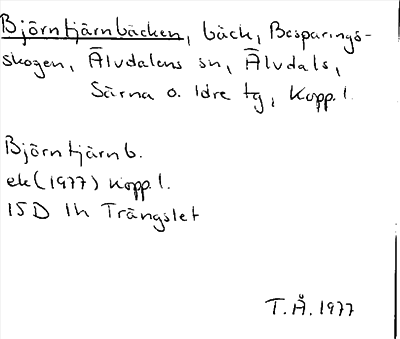 Björntjärnbäcken, bäck, Besparings-
skogen, Älvdalens sn, Älvdals,
Särna o. Idre tg, Kopp. l.
Björntjärnb.
ek (1977) Kopp. l.
15D 1h Trängslet
T.Å. 1977